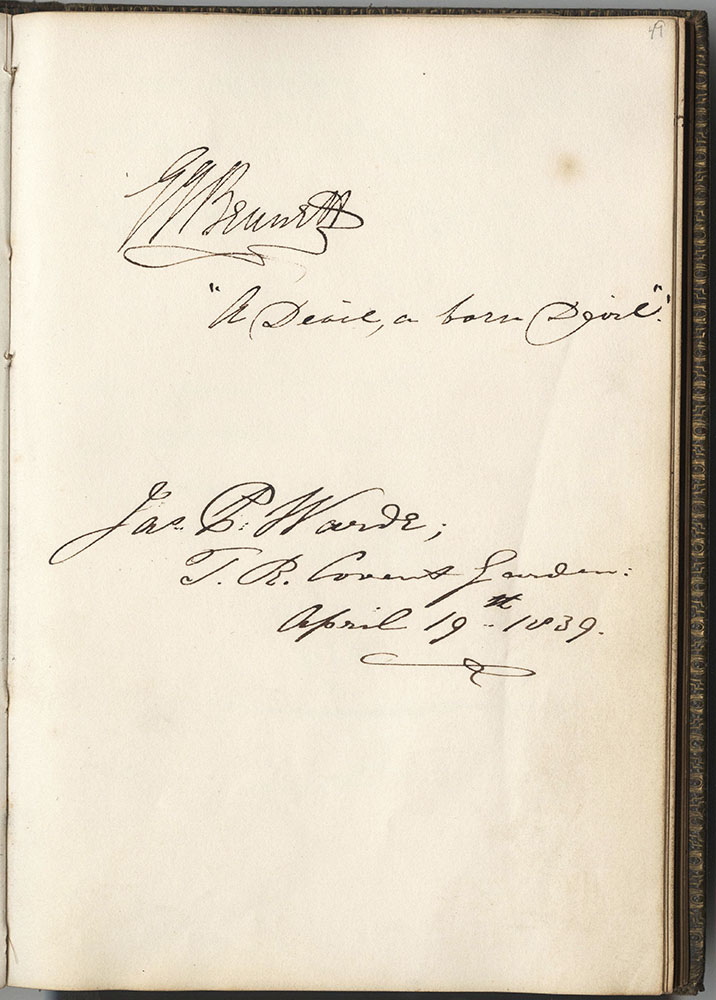 49
G J Bennett
"A Devil, a born Devil".
Jas. P. Warde;
T. R. Covent Garden:
April 19th 1839.